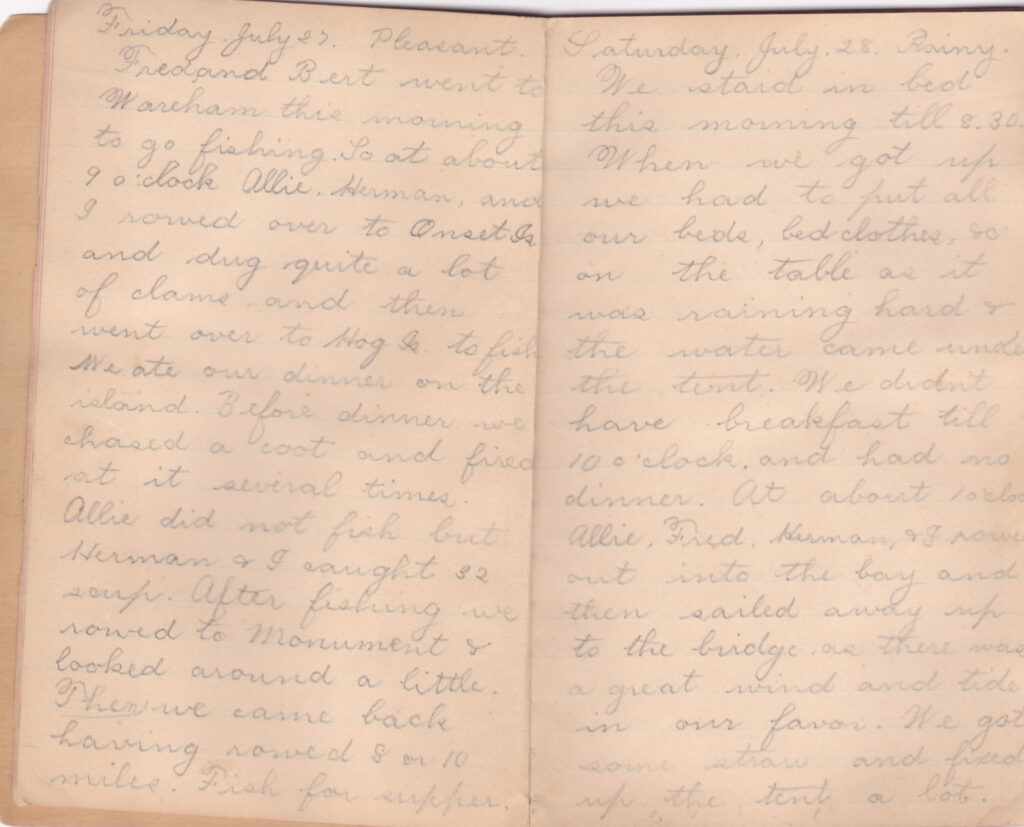 Friday. July 27. Pleasant.
Fred and Bert went to
Wareham this morning
to go fishing. So at about
9 o'clock Allie, Herman, and
I rowed over to Onset Is
and dug quite a lot
of clams and then
went over to Hog Is. to fish
We ate our dinner on the
island. Before dinner we
chased a coot and fired
at it several times.
Allie did not fish but
Herman & I caught 32
scup. After fishing we
rowed to Monument &
looked around a little.
Then we came back
having rowed 8 or 10
miles. Fish for supper.
Saturday. July. 28. Rainy.
We staid in bed
this morning till 8.30.
When we got up
we had to put all
our beds, bedclothes, &c
on the table as it
was raining hard &
the water came unde
the tent. We didnt
have breakfast till
10 o'clock, and had no
dinner. At about 1 o'cloc
Allie, Fred, Herman, & I rowe
out into the bay and
then sailed away up
to the bridge as there was
a great wind and tide
in our favor. We got
some straw and fixed
up the tent a lot.